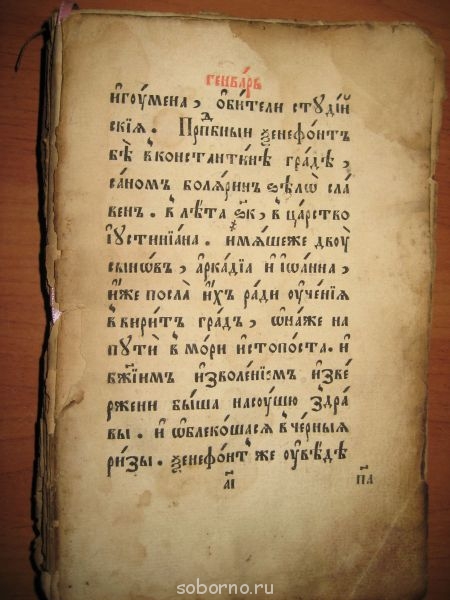 генва́рь
и҆гоу́мена , ѻ҆би́тели стꙋді́й
скїѧ . Прпⷣбныи ѯенефо́нтъ
бѣ̀ в̾константи́нѣ гра́дѣ ,
са́номъ болѧ́ринъ ѕѣлѡ̀ сла́
венъ . в̾лѣ́та ҂ѕ҃к , в̾ца́рство
і҆ꙋстинїа́на . и҆мѧ́шеже двою̀
сынѡ́въ , а҆рка́дїа и҆ і҆ѡа́нна ,
и҆́же посла̀ и҆́хъ ра́ди оу҆че́нїѧ
в̾вири́тъ гра́дъ , ѡ҆на́же на
пꙋтѝ в̾мо́ри и҆стопо́ста . и҆
бж҃їимъ и҆зволе́нїемъ и҆зве́
ржени бы́ша насоу́шю здра́
вы . и҆ ѡ҆блеко́шасѧ в̾че́рныѧ
ри́зы . ѯенефо́нт̾ же оу҆вѣ́дѣ
а҃і
п҃а
soborno.ru